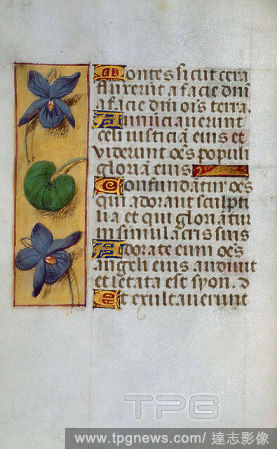 Montes sicut cera
fluxerunt a facie dni
a facie dni ois terra.
Annunciauerunt
celi iusticiam eius et
viderunt oes populi
gloriam eius
Confundantur oes
qui adorant sculpti
lia et qui gloriantur
in simulacris suis
Adorate eum oes
angeli eius audiuit
et letata est syon. d
Et exultauerunt
TPG
www.tpgnews.com/達志影像